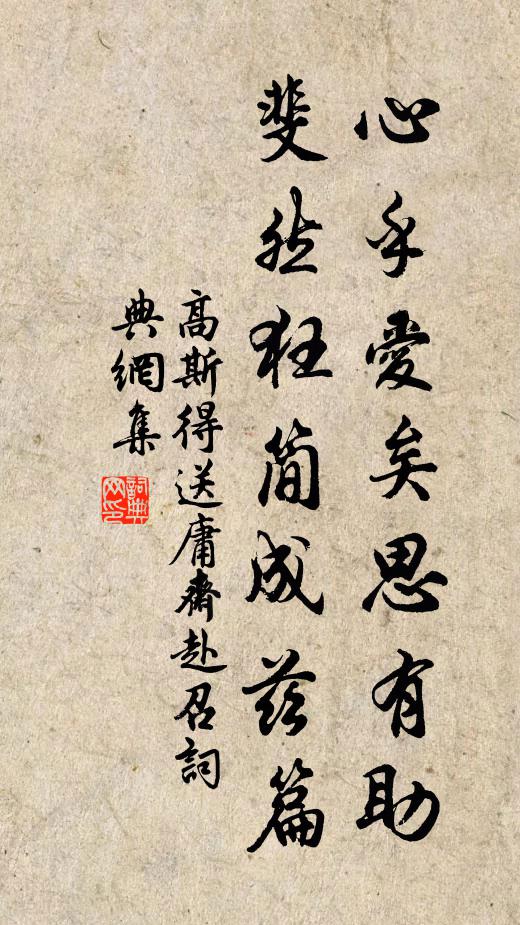 心乎愛矣思有助
斐然狂简成茲篇
高斯得送庸齋赴召詞
典網集
詞典
网印